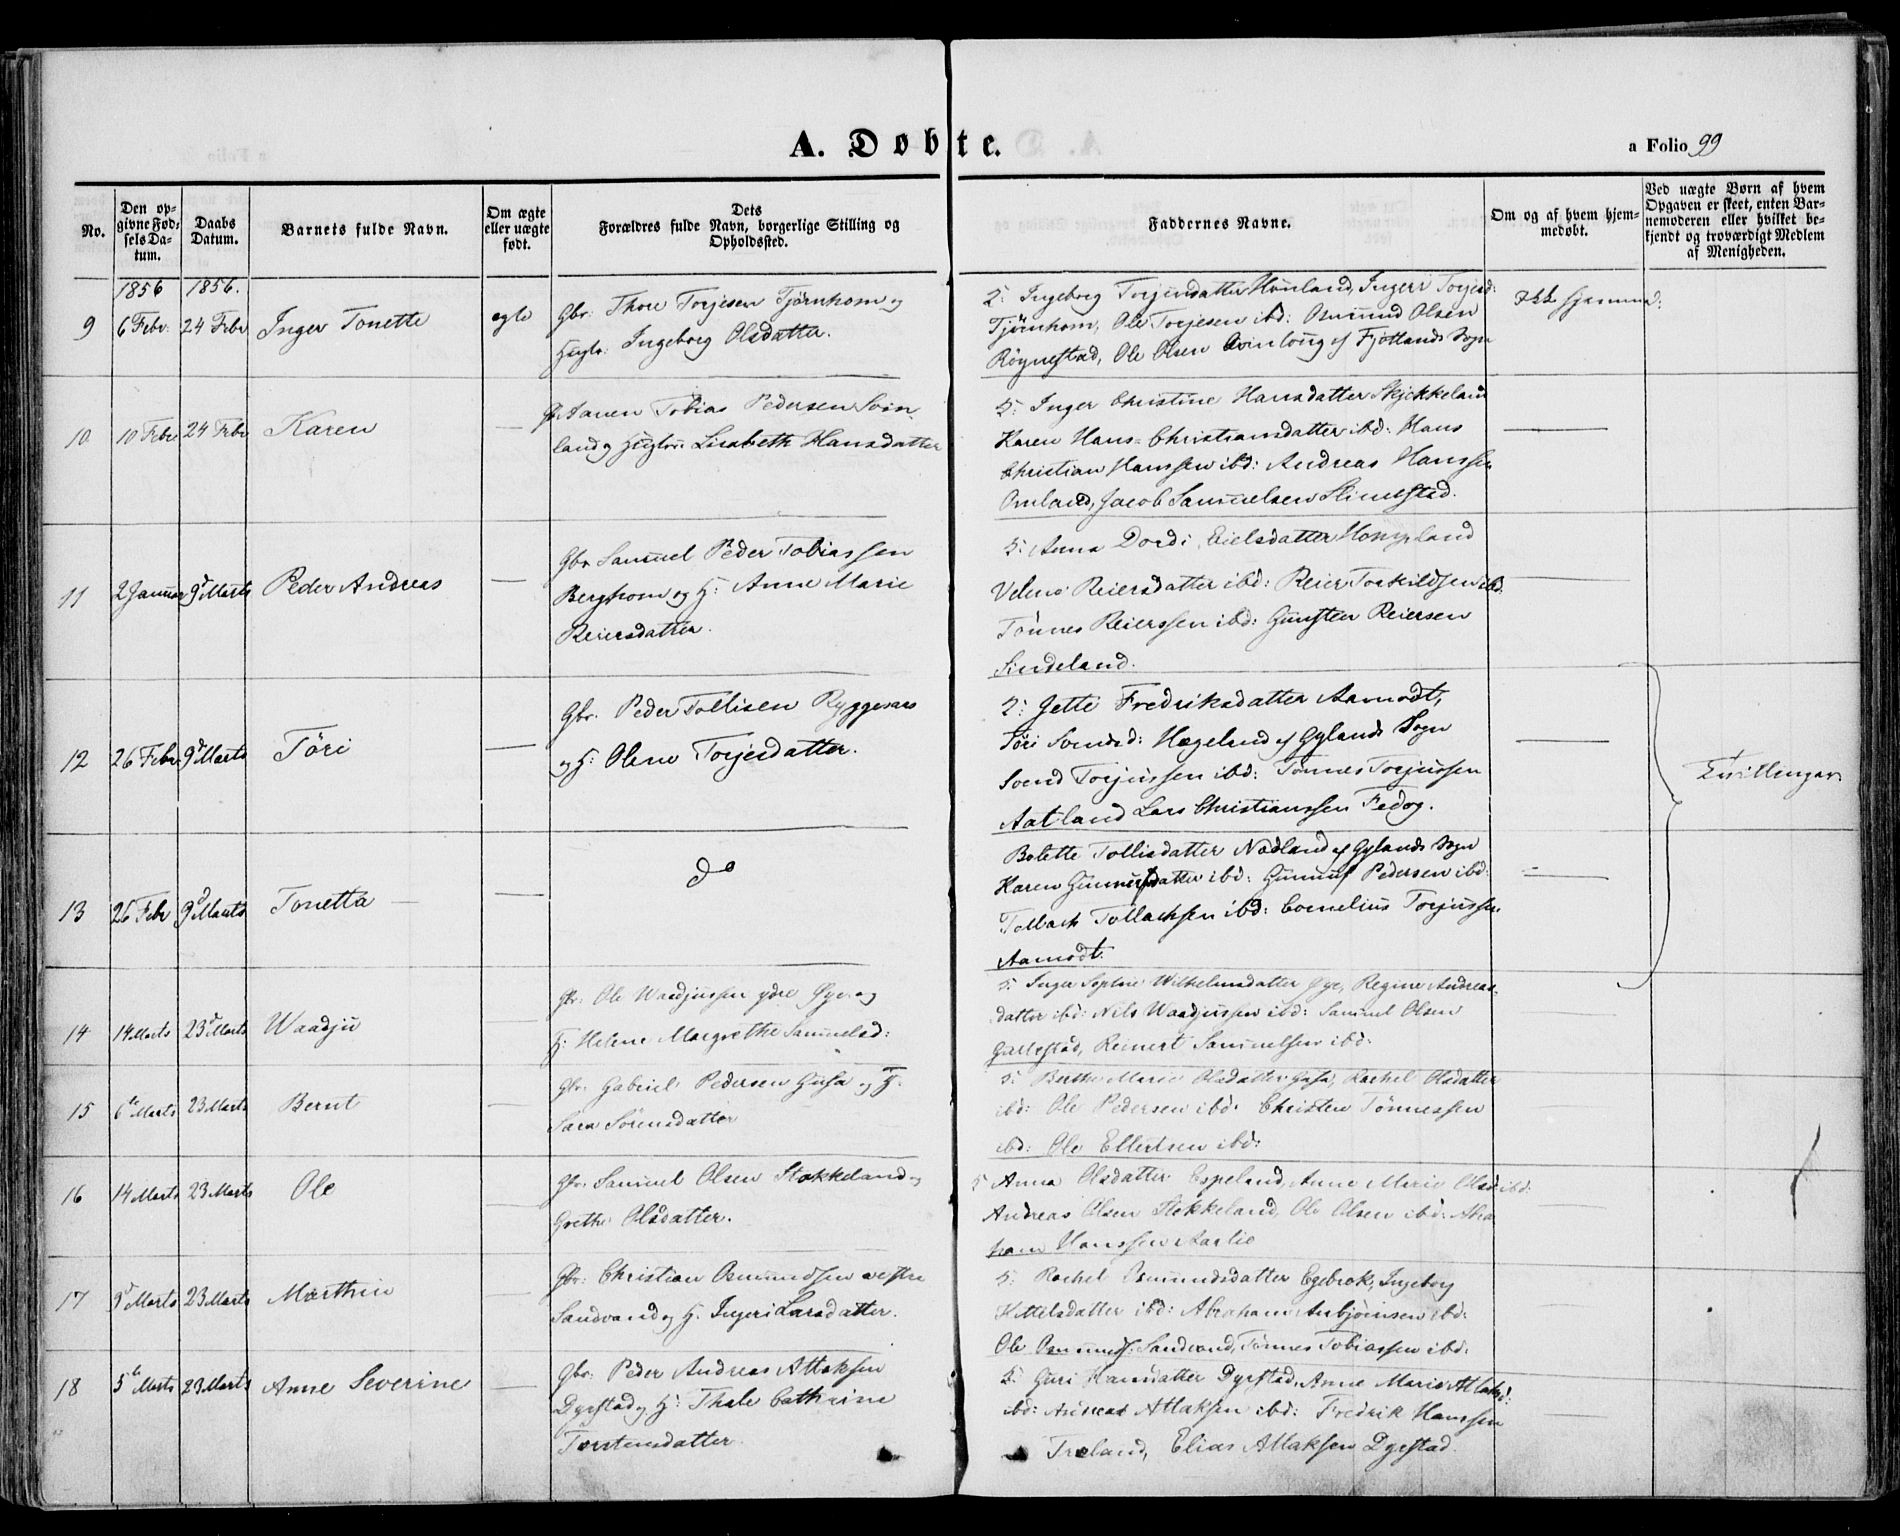 A. Døbte.
a Folio 99
No.
Den opgivne Fødsels Datum.
Daabs Datum.
Barnets fulde Navn.
Om ægte eller uægte født.
Dets Forældres fulde Navn, borgerlige Stilling og Opholdssted.
Faddernes Navne.
Om og af hvem hjemmedøbt.
Ved uægte Børn af hvem Opgaven er skeet, enten Barnemoderen eller hvilket bekjendt og troværdigt Medlem af Menigheden.
1856 1856.
9 6 Febr: 24 Febr Inger Tonette egte
Gbr: Thore Torjesen Tjørnhom og
Ingeborg Olsdatter.
5: Ingeborg Torjusdatter Homland, Ingeri Torjesd:
Tjørnhom, Ole Torjesen ibd: Osmund Olsen
Røynestad, Ole Olsen af Fjotlands Sogn
Ikke hjemmed:
10 10 Febr 24 Febr Karen —
Tobias Pedersen Svin-
land og Lisabeth Hansdatter
5: Inger Christine Hansdatter Skjekkeland
Karen Hans-Christiansdatter ibd: Hans
Christian Hanssen ibd: Andreas Hanssen
Omland, Jacob Samuelsen Slimestad.
11 2 Januar 9d Marts Peder Andreas —
Gbr Samuel Peder Tobiassen
Berghom og H: Anne Marie
Reiersdatter.
5: Anna Dordi Eielsdatter Hompland
Velene Reiersdatter ibd: Reier Torkildsen ibd:
Tønnes Reierssen ibd: Gunsten Reiersen
Sindeland.
12 26 Febr 9d Marts Töri —
Gbr. Peder Tollisen Ryggesaas
og H: Olene Torjesdatter.
5: Jette Fredriksdatter Aamodt,
Töri Svendsd: Hægeland af Gylands Sogn
Svend Torjussen ibd: Tönnes Torjussen
Aatland Lars Christianssen Fedog.
Tvillinger
13 26 Febr 9d Marts Tonetta —
do
Bolette Tollisdatter Nødland af Gylands Sogn
Karen Gunnufsdatter ibd: Gunnuf Pedersen ibd:
Tollack Tollachsen ibd: Cornelius Torjussen
Aamodt.
14 14 Marts 23d Marts Waadju
Gbr: Ole Waadjussen ydre Øye og
H: Helene Margrethe Samuelsd:
5: Inger Sophie Wilhelmsdatter Øye, Regine Andreas-
datter ibd: Nils Waadjussen ibd: Samuel Olsen
Gullestad, Reinert Samuelsen ibd:
15 6te Marts 23 Marts Bernt
Gbr: Gabriel Pedersen Gusa og H:
Sara Sörensdatter
5: Berthe Marie Olsdatter Gusa, Rachel Olsdatter
ibd: Ole Pedersen ibd: Christen Tönnessen
ibd: Ole Ellertsen ibd:
16 14 Marts 23 Marts Ole
Gbr: Samuel Olsen Stokkeland og
Grethe Olsdatter.
5 Anna Olsdatter Espeland, Anne Marie Olsd: ibd:
Andreas Olsen Stokkeland Ole Olsen ibd: Abra-
ham Hanssen Aarlie
17 3d Marts 23 Marts Marthin
Gbr: Christian Osmundsen vestre
Sandvand og H. Ingeri Larsdatter.
5: Rachel Osmundsdatter Egebrok, Ingeborg
Kittelsdatter ibd: Abraham Asbjörnsen ibd:
Ole Osmunds. Sandvand, Tönnes Tobiassen ibd:
18 5te Marts 23 Marts Anne Severine
Gbr: Peder Andreas Atlaksen
Dyrstad og H: Thale Cathrine
Torstensdatter.
5: Guri Hansdatter Dyrstad, Anne Marie Atlaksd:
ibd: Andreas Atlaksen ibd: Fredrik Hanssen
Træland, Elias Atlaksen Dyrstad.